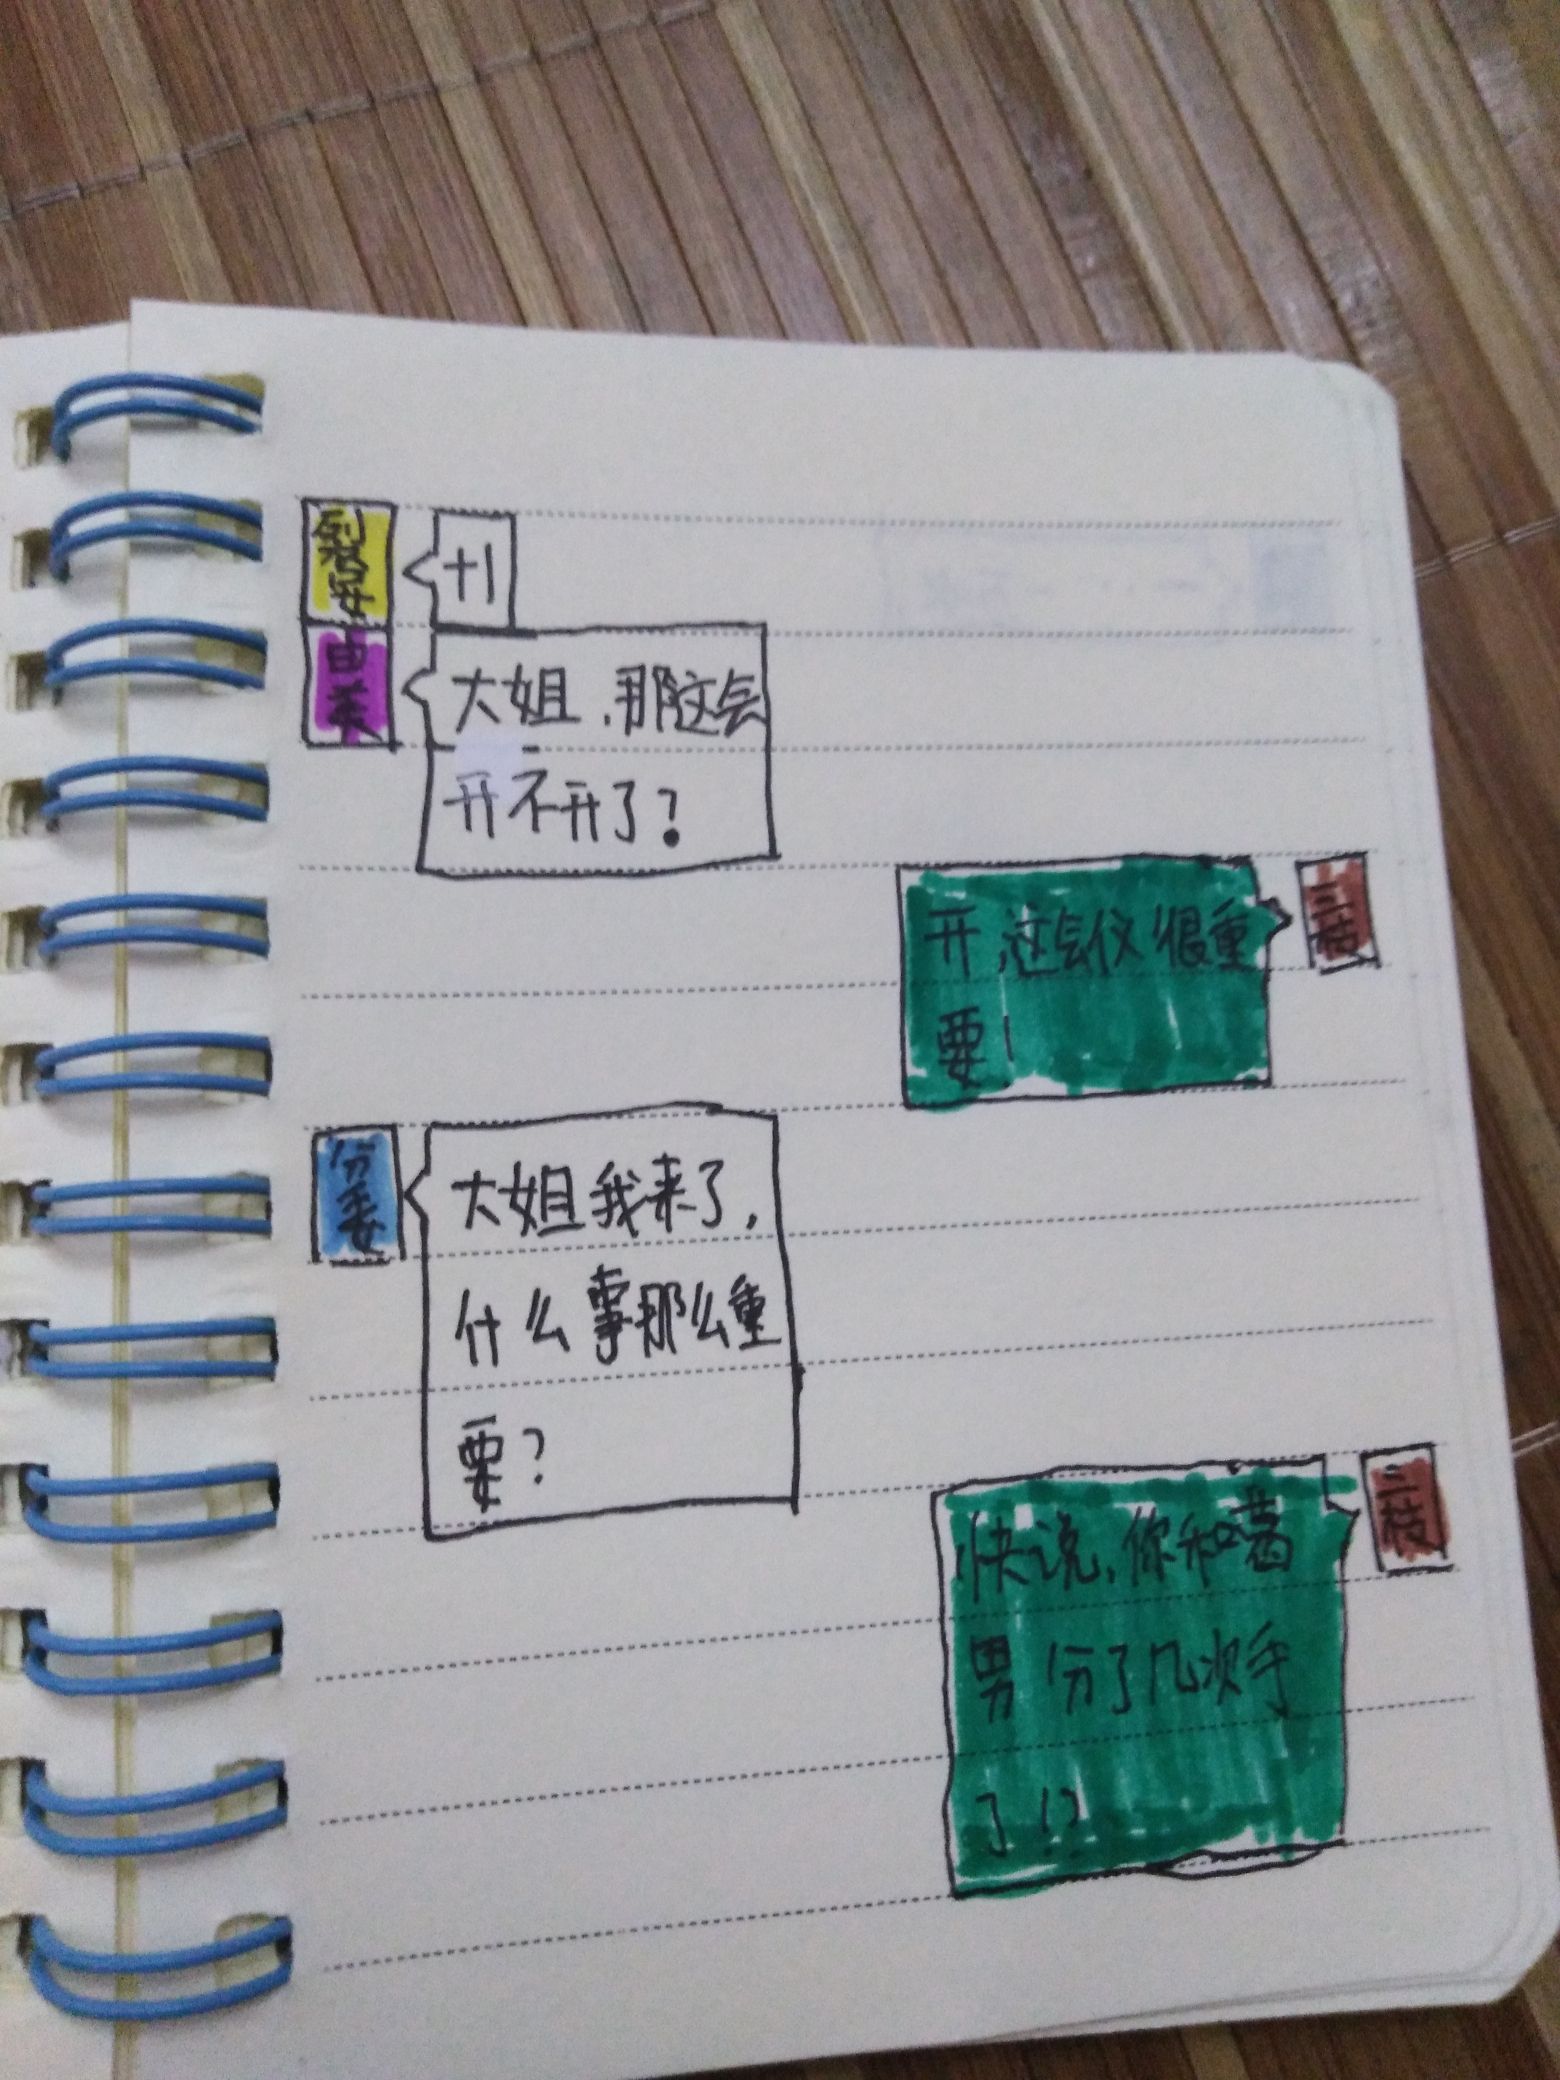 +1
大姐,那这会
开不开了?
三枝
开,这会仪很重
要!
大姐我来了,
什么事那么重
要?
三枝
快说,你和葛
男分了几次手
了!?